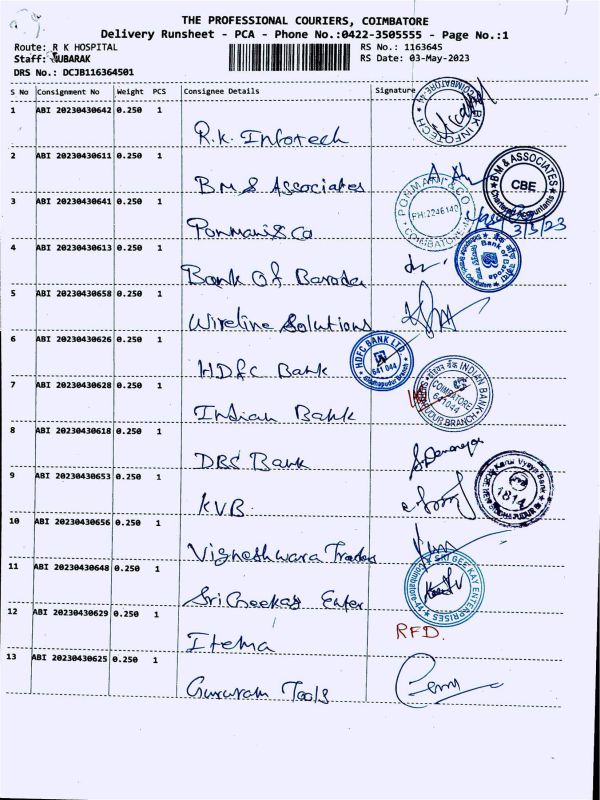 THE PROFESSIONAL COURIERS, COIMBATORE
Delivery Runsheet - PCA - Phone No.:0422-3505555 - Page No.:1
Route: R K HOSPITAL
RS No.: 1163645
Staff: MUBARAK
RS Date: 03-May-2023
DRS No.: DCJB116364501
S No Consignment No Weight PCS Consignee Details Signature
1 ABI 20230430642 0.250 1 R.K. Infotech
RK INFOTECH COIMBATORE-44
2 ABI 20230430611 0.250 1 BMS Associates
B M & ASSOCIATES CBE Chartered Accountants
3 ABI 20230430641 0.250 1 Ponmani & Co
PONMANI & CO PH:2246140 COIMBATORE
3/5/23
4 ABI 20230430613 0.250 1 Bank Of Baroda
Bank of Baroda
5 ABI 20230430658 0.250 1 Wireline Solutions
6 ABI 20230430626 0.250 1 HDFC Bank
HDFC BANK LTD. 641 044
7 ABI 20230430628 0.250 1 Indian Bank
इंडियन बैंक INDIAN BANK COIMBATORE 641044 BRANCH
8 ABI 20230430618 0.250 1 DBS Bank
9 ABI 20230430653 0.250 1 KVB
Karur Vysya Bank 1814
10 ABI 20230430656 0.250 1 Vigneshwara Trades
11 ABI 20230430648 0.250 1 Sri Geekay Enter
SRI GEE KAY ENTERPRISES Coimbatore-44
12 ABI 20230430629 0.250 1 Itema
RFD.
13 ABI 20230430625 0.250 1 Gururam Tools